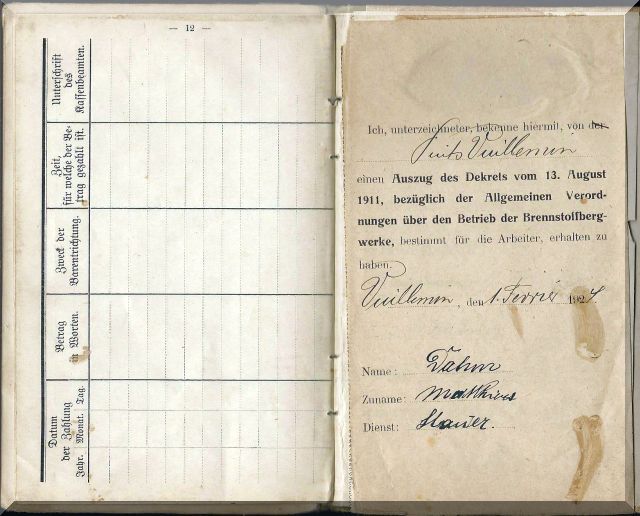 — 12 —
Unterschrift
des
Kassenbeamten.
Zeit,
für welche der Be-
trag gezahlt ist.
Zweck der
Barentrichtung.
Betrag
in Worten.
Datum
der Zahlung
Jahr. Monat. Tag.
Ich, unterzeichneter, bekenne hiermit, von der
Puits Vuillemin
einen Auszug des Dekrets vom 13. August
1911, bezüglich der Allgemeinen Verord-
nungen über den Betrieb der Brennstoffberg-
werke, bestimmt für die Arbeiter, erhalten zu
haben.
Vuillemin, den 1. Fevrie 1924.
Name: Dahm
Zuname: Matthieu
Dienst: Hauer.